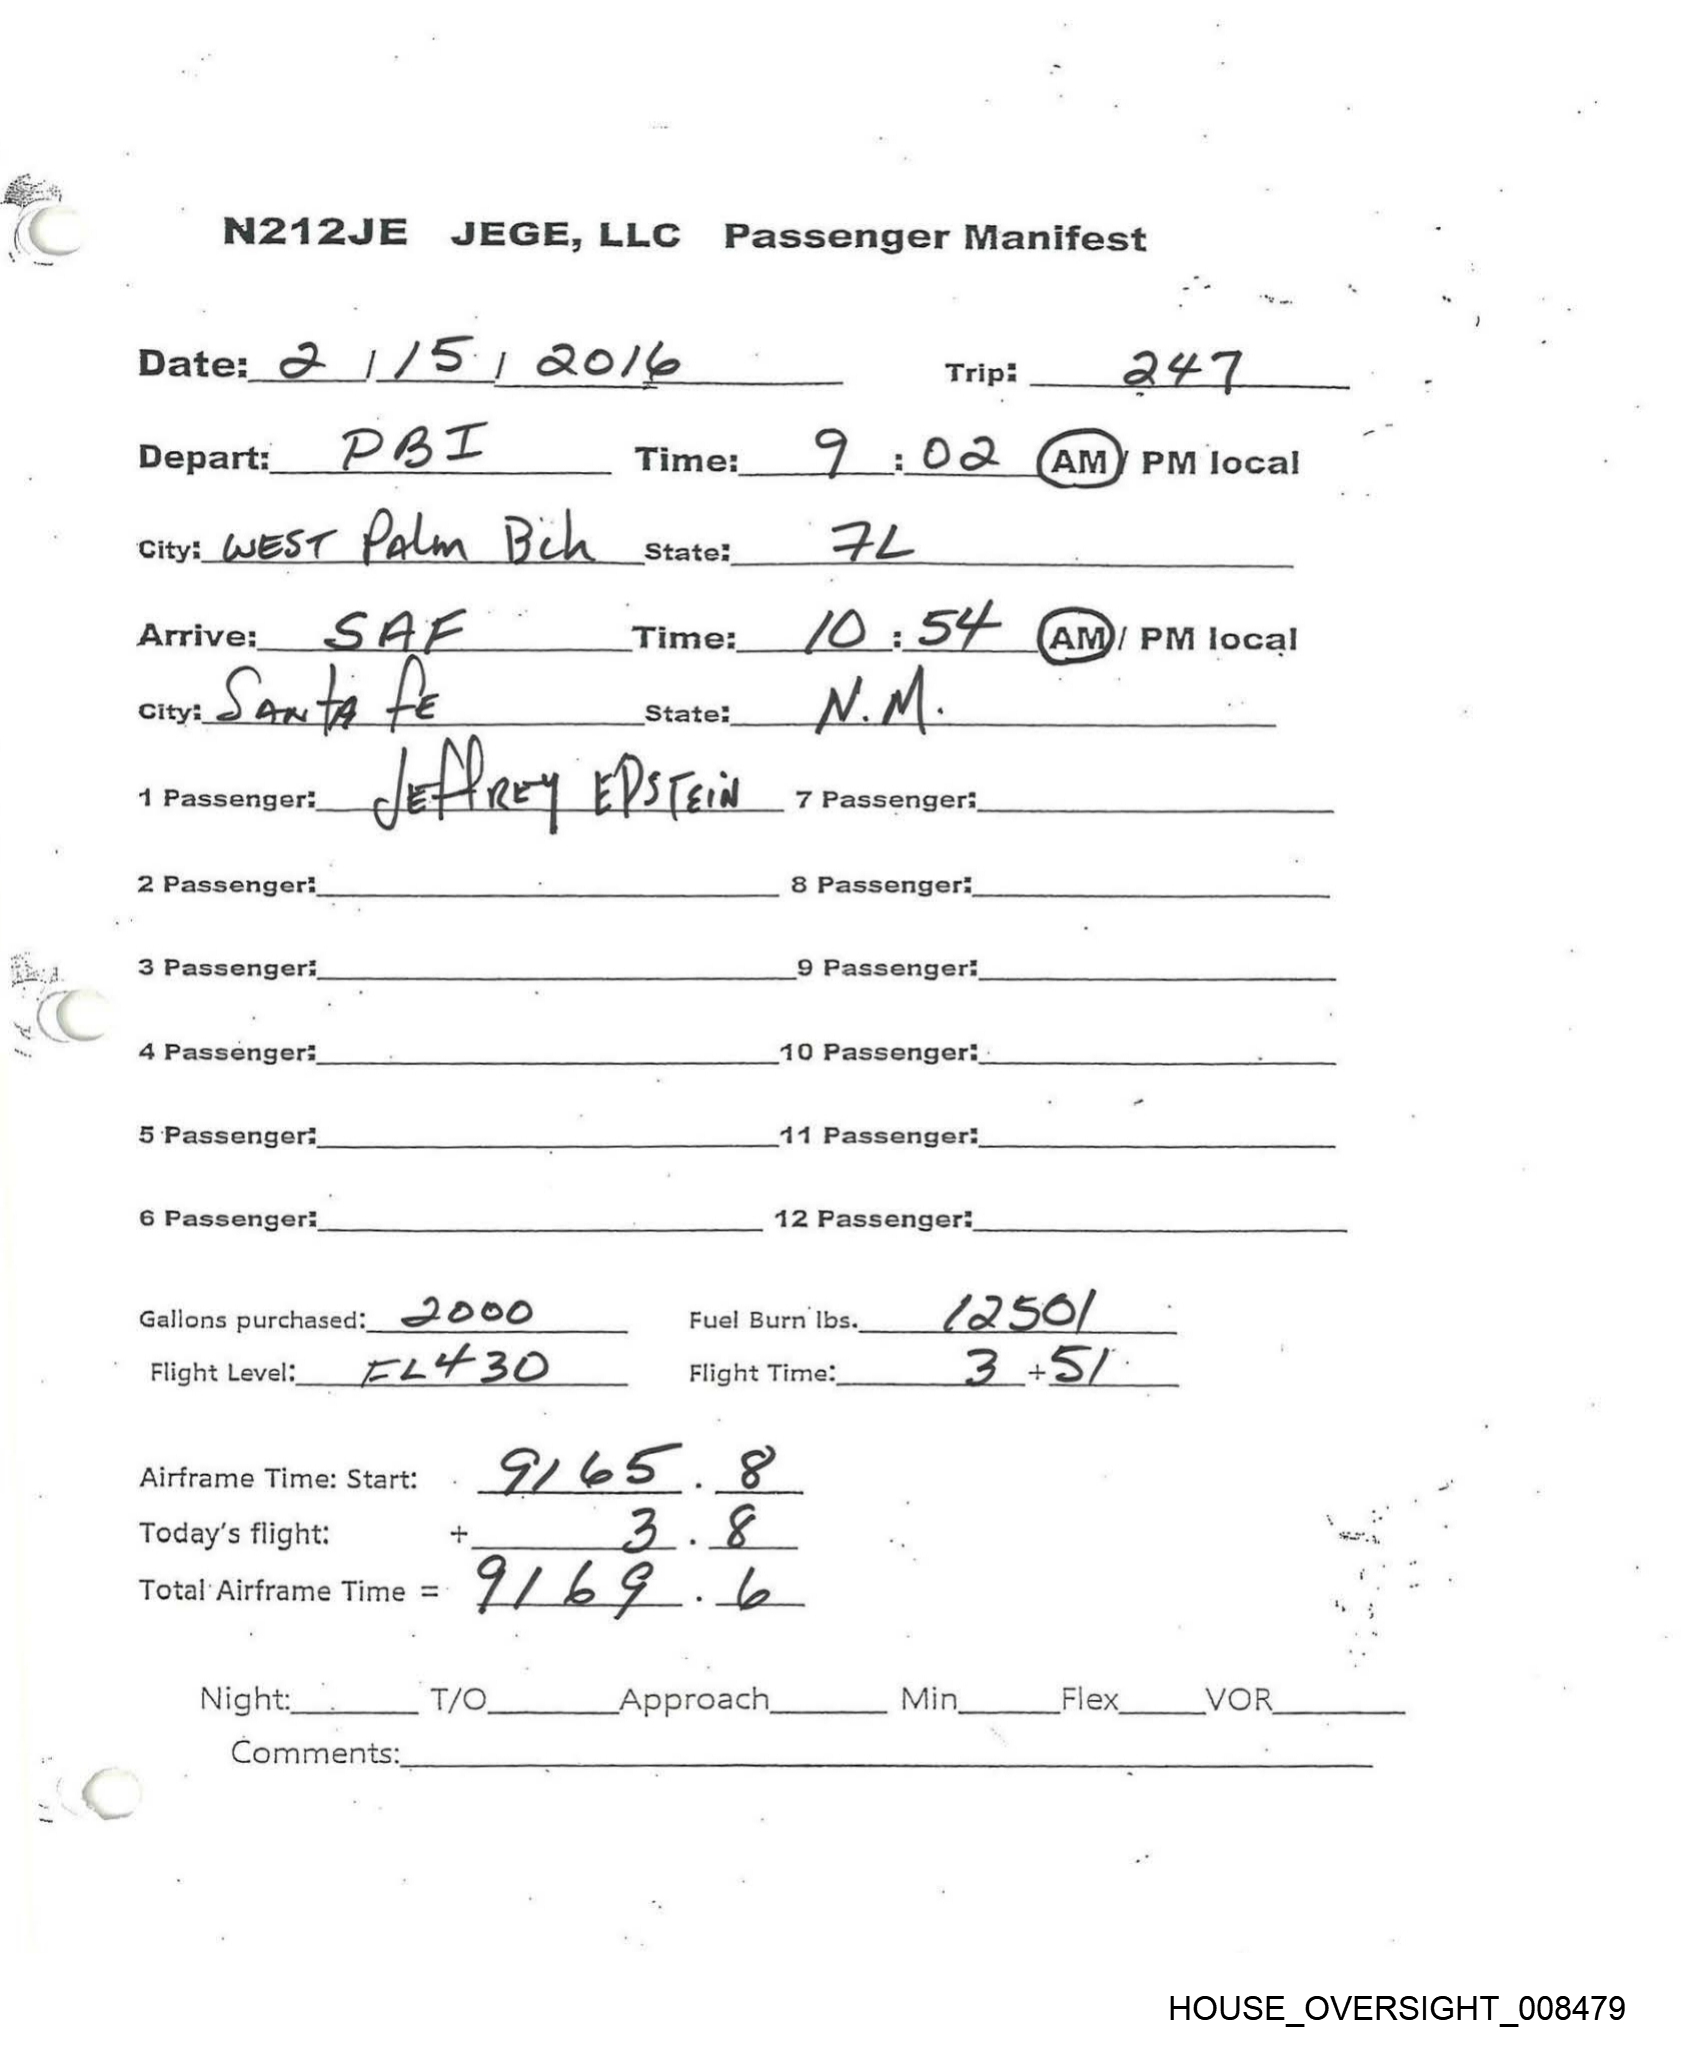 N212JE JEGE, LLC Passenger Manifest
Date: 2 / 15 / 2016 Trip: 247
Depart: PBI Time: 9 : 02 AM / PM local
City: WEST Palm Bch State: FL
Arrive: SAF Time: 10 : 54 AM / PM local
City: SANTA Fe State: N.M.
1 Passenger: JEffREY EPSTEiN 7 Passenger:
2 Passenger: 8 Passenger:
3 Passenger: 9 Passenger:
4 Passenger: 10 Passenger:
5 Passenger: 11 Passenger:
6 Passenger: 12 Passenger:
Gallons purchased: 2000 Fuel Burn lbs. 12501
Flight Level: FL430 Flight Time: 3 + 51
Airframe Time: Start: 9165 . 8
Today's flight: + 3 . 8
Total Airframe Time = 9169 . 6
Night: T/O Approach Min Flex VOR
Comments:
HOUSE_OVERSIGHT_008479